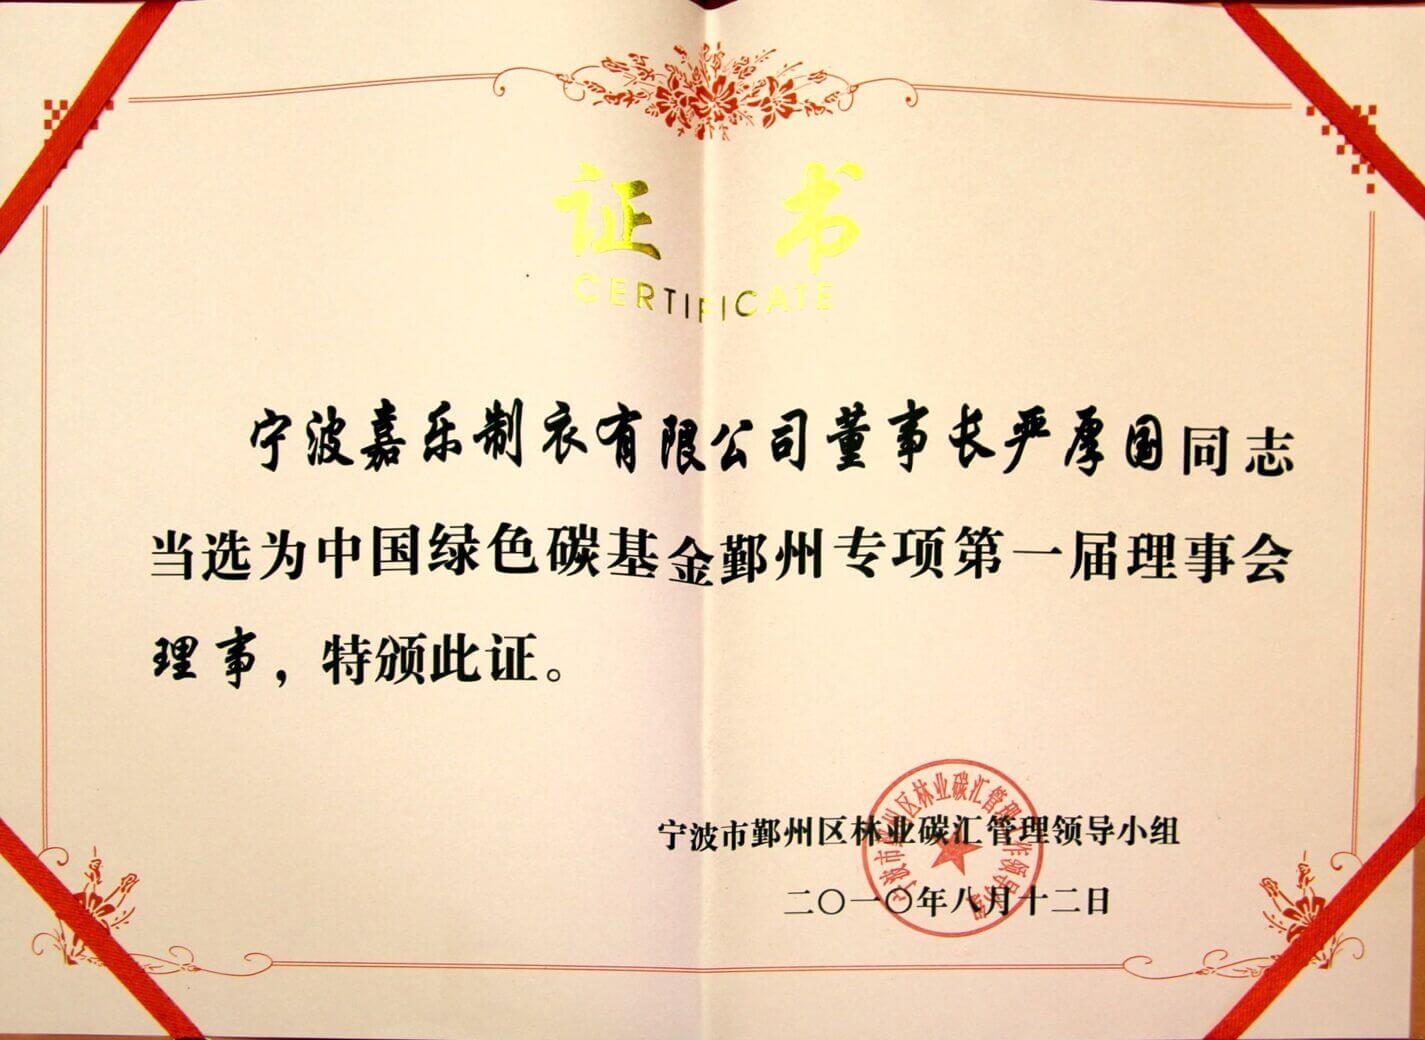 证 书
CERTIFICATE
宁波嘉乐制衣有限公司董事长严厚国同志
当选为中国绿色碳基金鄞州专项第一届理事会
理事，特颁此证。
宁波市鄞州区林业碳汇管理领导小组
二〇一〇年八月十二日
宁波市鄞州区林业碳汇管理工作领导小组